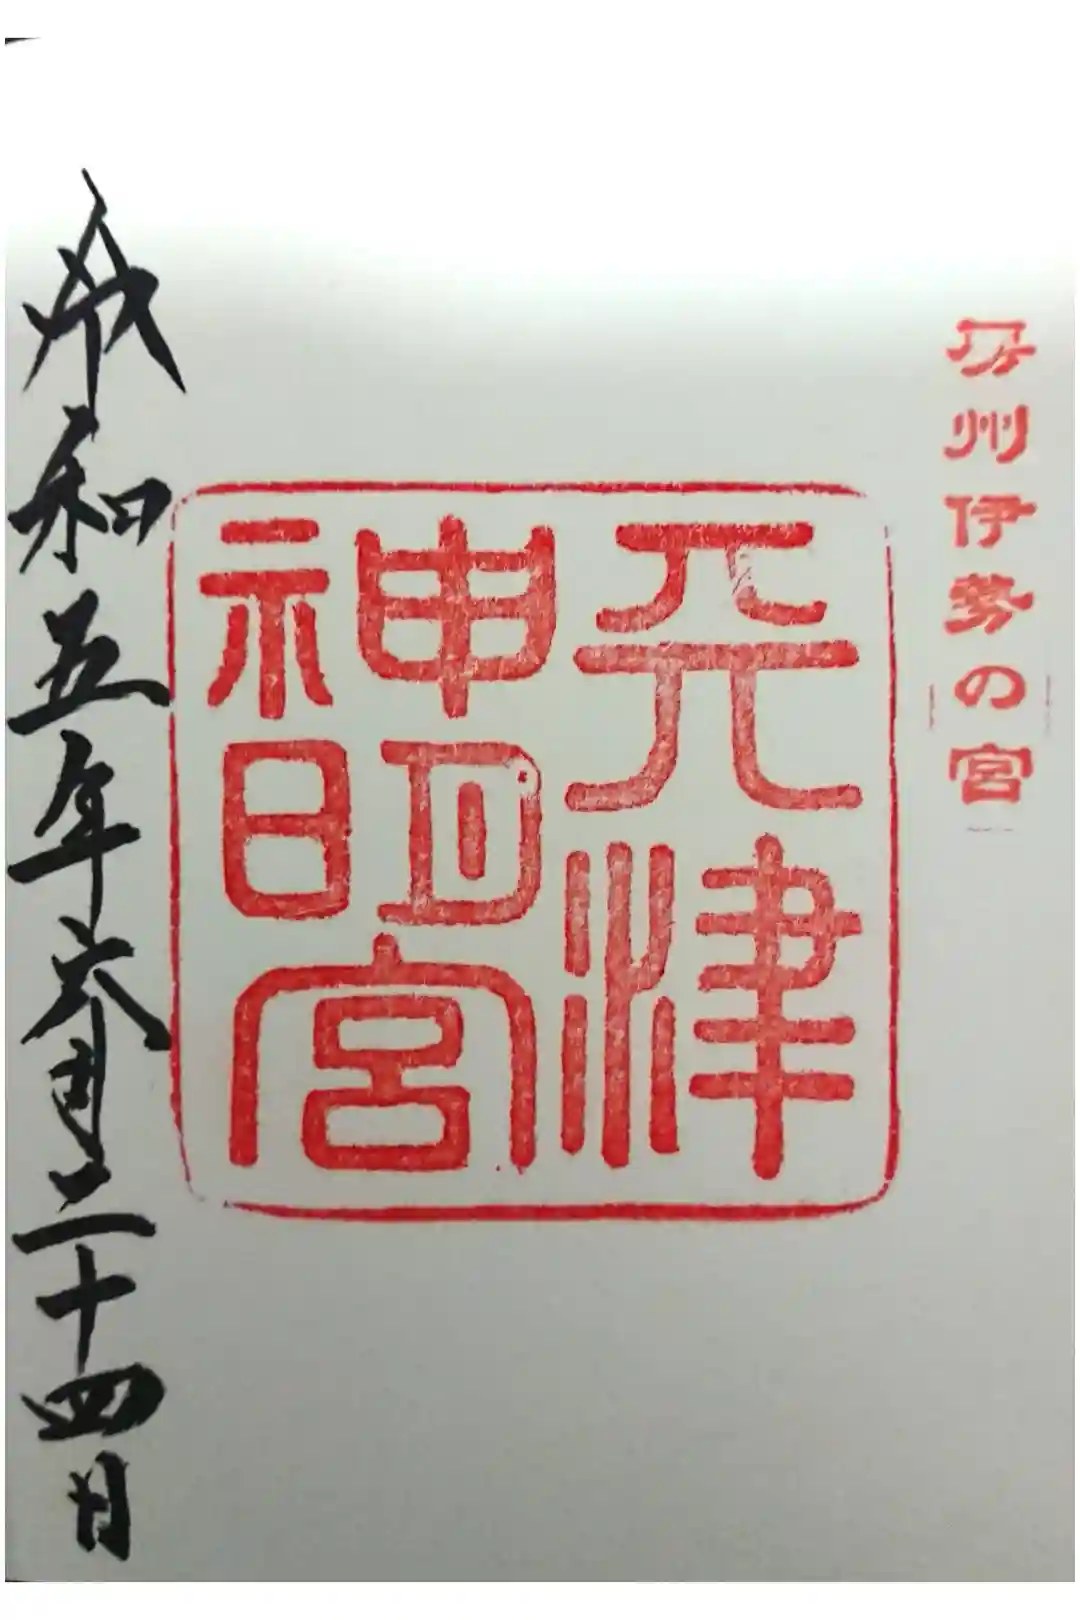 房州伊勢の宮
天津
神明宮
令和五年六月二十四日